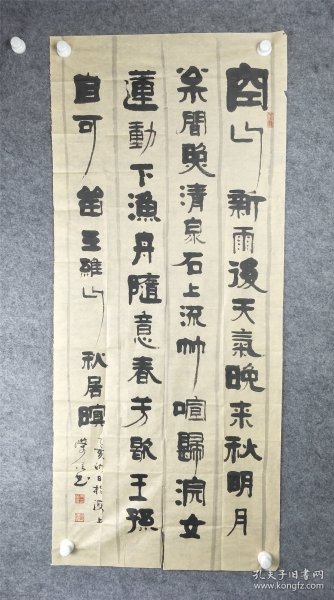 空山新雨後天氣晚来秋明月
枀間照清泉石上流竹喧歸浣女
蓮動下漁舟隨意春芳歇王孫
自可留王維山秋居暝
乙亥秋日於滬上
孔夫子旧书网